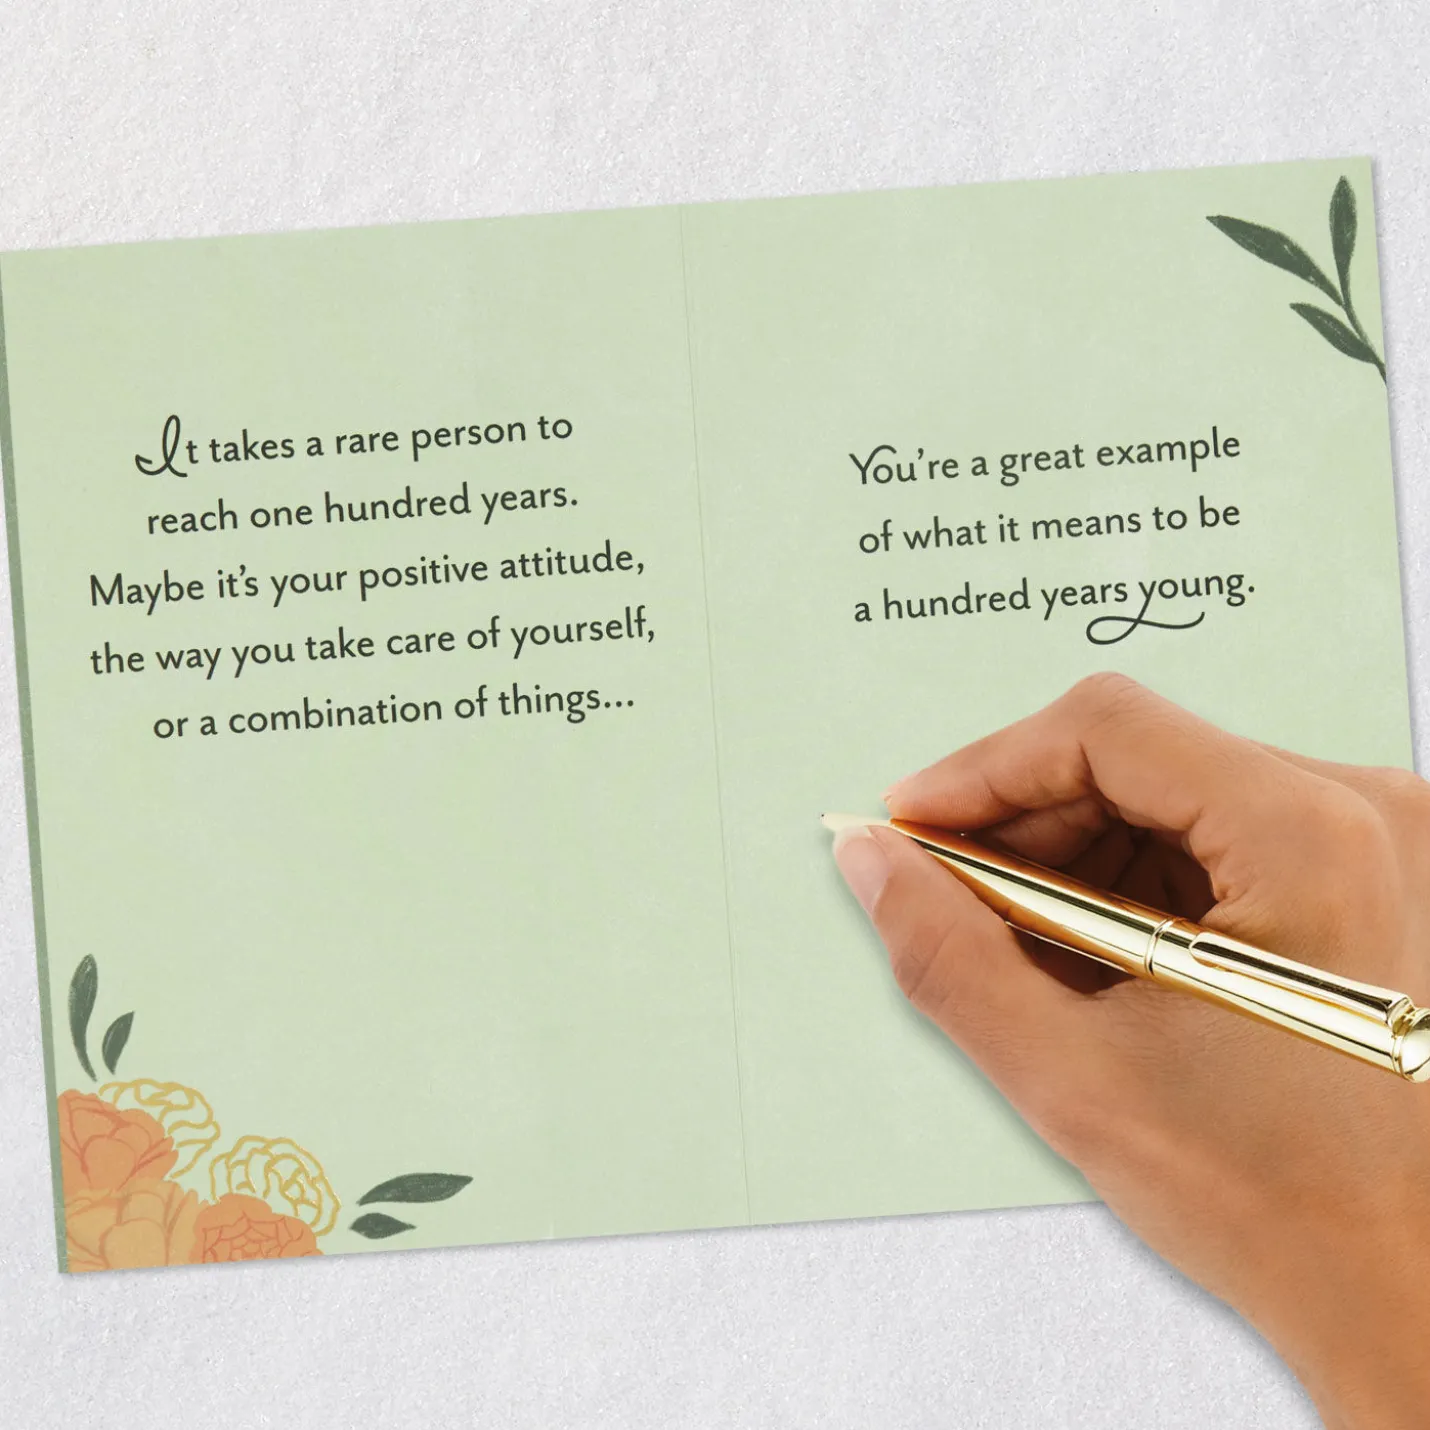 It takes a rare person to
reach one hundred years.
Maybe it's your positive attitude,
the way you take care of yourself,
or a combination of things...
You're a great example
of what it means to be
a hundred years young.